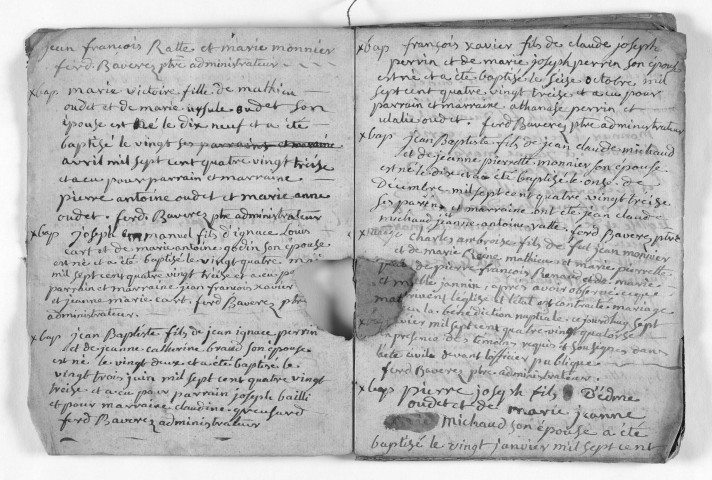 jean françois Ratte et marie monnier
ferd. Baverez ptre administrateur
xbap marie victoire fille de mathieu
oudet et de marie ursule oudet son
épouse est né le dix neuf et a été
baptisé le vingt ses parrain et maraine
avril mil sept cent quatre vingt treise
et a eu pour parrain et marraine
pierre antoine oudet et marie anne
oudet. ferd Baverez ptre administrateur
xbap joseph emanuel fils d'ignace Louis
cart et de marie antoine godin son épouse
est né et a été baptisé le vingt quatre mai
mil sept cent quatre vingt treise et a eu p
parrain et marraine jean françois xavier
et jeanne marie cart. ferd Baverez ptre
administrateur.
xbap jean Baptiste fils de jean ignace perrin
et de jeanne catherine braud son épouse
est né le vingt deux et a été baptisé le
vingt trois juin mil sept cent quatre vingt
treise et a eu pour parrain joseph bailli
et pour marraine claudine greusard
ferd Baverez administrateur
xbap françois xavier fils de claude joseph
perrin et de marie joseph perrin son épouse
est né et a été baptisé le seise octobre mil
sept cent quatre vingt treise et a eu pour
parrain et marraine athanase perrin et
ulalie oudet. ferd Baverez ptre administrateur
xbap jean Baptiste fils de jean claude michaud
et de jeanne pierrette monnier son épouse
est né le dix et a été baptisé le onse de
decembre mil sept cent quatre vingt treise
ses parrin et marraine ont été jean claude
michaud jeanne antoine ratte. ferd Baverez ptre
Charles ambroise fils de feu jean monnier
et de marie Reine mathieu et marie pierrette
de pierre françois Renaud et de marie
jannin, après avoir observé ce que
l'église et l'état ont contracté mariage
la bénédiction nuptiale ce jourdhuy sept
janvier mil sept cent quatre-vingt quatorse
presence des temoins requis et soussignés dans
l'été civile devant l'officier publique
ferd Baverez ptre administrateur.
xbap pierre joseph fils D'édme
oudet et de marie jeanne
michaud son épouse a été
baptisé le vingt janvier mil sept cent